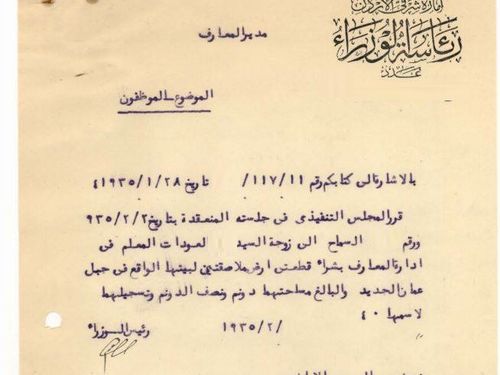 امارة شرق الاردن
رئاسة الوزراء
عدد
مدير المعارف
الموضوع ـ الموظفون
بالاشارة الى كتابكم رقم ١١٧/١١/ تاريخ ١٩٣٥/١/٢٨
قرر المجلس التنفيذى فى جلسته المنعقدة بتاريخ ٩٣٥/٢/٢
ورقم السماح الى زوجة السيد لعودات المعلم فى
ادارة المعارف بشراء قطعتى ارض ملاصقتين لبيتها الواقع فى جبل
عمان الجديد والبالغ مساحتهما دونم ونصف الدونم وتسجيلهما
لاسمها ٠
١٩٣٥/٢/ رئيس الوزراء